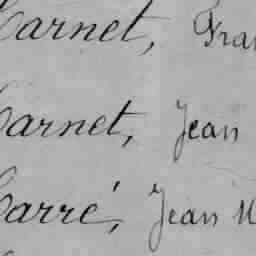 Carnet, Fran
Carnet, Jean
Carré, Jean M